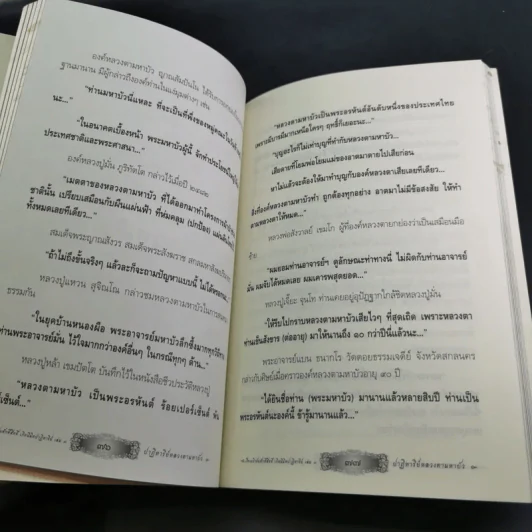 องค์หลวงตามหาบัว ญาณสัมปันโน ได้รับการ
ฐานมานาน มีผู้กล่าวถึงองค์ท่านในแง่มุมต่างๆ เช่น
"ท่านมหาบัวนี่แหละ ที่จะเป็นที่พึ่งของหมู่คณะ
นะ..."
"ในอนาคตเบื้องหน้า พระมหาบัวผู้นี้ จักทำประโยชน์
ประเทศชาติและพระศาสนา..."
องค์หลวงปู่มั่น ภูริทัตโต กล่าวไว้เมื่อปี ๒๔๘๒
"เมตตาของหลวงตามหาบัว ที่ได้ออกมาทำโครงการ
ชาตินั้น เปรียบเสมือนกับผืนแผ่นฟ้า ที่ห่มคลุม (ปกป้อง)
ทั้งหมดเลยทีเดียว..."
สมเด็จพระญาณสังวร สมเด็จพระสังฆราช สกลมหาสังฆปริณายก
"ถ้าไม่ถึงขั้นจริงๆ แล้วละก็จะถามปัญหาแบบนี้ ไม่ได้หรอก
หลวงปู่แหวน สุจิณโณ กล่าวชมหลวงตามหาบัวในการสนทนา
ธรรมกัน
"ในยุคบ้านหนองผือ พระอาจารย์มหาบัวลึกซึ้งมากทุกวิธี
ท่านพระอาจารย์มั่น ไว้ใจมากกว่าองค์อื่นๆ ในกรณีทุกๆ ด้าน..."
หลวงปู่หล้า เขมปัตโต บันทึกไว้ในหนังสือชีวประวัติหลวงปู่
"หลวงตามหาบัว เป็นพระอรหันต์ ร้อยเปอร์เซ็นต์ พัน
เซ็นต์..."
๗๖
ปาฏิหาริย์หลวงตามหาบัว
"หลวงตามหาบัวเป็นพระอรหันต์อันดับหนึ่งของประเทศไทย
เพราะมีบารมีมากเหนือใครๆ ฤทธิ์ก็เยอะนะ..."
"บุญอะไรก็ไม่เท่าบุญที่ทำกับหลวงตามหาบัว...
เสียดายที่โยมพ่อโยมแม่ของอาตมาตายไปเสียก่อน
หาไม่แล้วจะต้องให้มาทำบุญกับองค์หลวงตาเสียเลยทีเดียว...
สิ่งที่องค์หลวงตามหาบัวทำ ถูกต้องทุกอย่าง อาตมาไม่มีข้อสงสัย ให้ทำ
ตามหลวงตาได้หมด..."
หลวงพ่อสังวาลย์ เขมโก ผู้ที่องค์หลวงตายกย่องว่าเป็นเสมือนมือ
ซ้าย
"ผมยอมท่านอาจารย์ๆ ดูลักษณะท่าทางนี่ ไม่ผิดกับท่านอาจารย์
มั่น ผมจับได้หมดเลย ผมเคารพสุดยอด..."
หลวงปู่เจี๊ยะ จุนโท ท่านเคยอยู่อุปัฏฐากใกล้ชิดหลวงปู่มั่น
"ให้รีบไปกราบหลวงตามหาบัวเสียไวๆ ที่สุดเถิด เพราะหลวงตา
ท่านยืนสังขาร (ต่ออายุ) มาให้นานถึง ๑๐ กว่าปีนี่แล้วนะ..."
พระอาจารย์แบน ธนากโร วัดดอยธรรมเจดีย์ จังหวัดสกลนคร
กล่าวกับศิษย์เมื่อคราวองค์หลวงตามหาบัวอายุ ๙๐ ปี
"ได้ยินชื่อท่าน (พระมหาบัว) มานานแล้วหลายสิบปี ท่านเป็น
พระอรหันต์นะองค์นี้ ข้ารู้มานานแล้ว..."
๗๗
ปาฏิหาริย์หลวงตามหาบัว